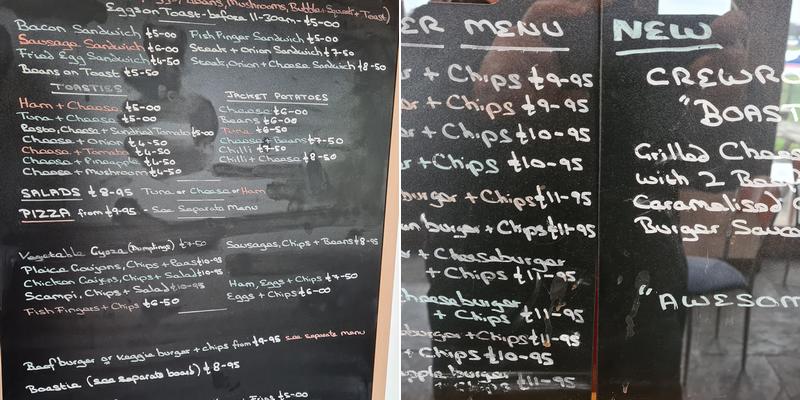 Beans, Mushrooms, Bubble + Squeak + Toast)
Eggs on Toast - before 11-30am - £5-00
Bacon Sandwich £5-00
Sausage Sandwich £6-00
Fried Egg Sandwich £4-50
Beans on Toast £5-50
Fish Finger Sandwich £5-00
Steak + Onion Sandwich £7-50
Steak, Onion + Cheese Sandwich £8-50
TOASTIES
Ham + Cheese £5-00
Tuna + Cheese £5-00
Pesto, Cheese + Sundried Tomato £5-00
Cheese + Onion £4-50
Cheese + Tomato £4-50
Cheese + Pineapple £4-50
Cheese + Mushroom £4-50
JACKET POTATOES
Cheese £6-00
Beans £6-00
Tuna £6-50
Cheese + Beans £7-50
Chilli £7-50
Chilli + Cheese £8-50
SALADS £8-95 Tuna or Cheese or Ham
PIZZA from £9-95 See Separate Menu
Vegetable Gyoza (Dumplings) £7-50
Plaice Goujons, Chips + Peas £10-95
Chicken Goujons, Chips + Salad £10-95
Scampi, Chips + Salad £10-95
Fish Fingers + Chips £6-50
Sausages, Chips + Beans £8-95
Ham, Eggs + Chips £7-50
Eggs + Chips £6-00
Beef burger or Veggie burger + chips from £9-95 see separate menu
Boastie (see separate board) £8-95
Fries £5-00
ER MENU
+ Chips £9-95
+ Chips £9-95
+ Chips £10-95
+ Chips £10-95
burger + Chips £11-95
burger + Chips £11-95
+ Cheeseburger
+ Chips £11-95
Cheeseburger
+ Chips £11-95
burger + Chips £11-95
+ Chips £10-95
burger
+ Chips £11-95
NEW
CREWRO
"BOAST
Grilled Chees
with 2 Beef
Caramelised
Burger Sauce
"AWESOM